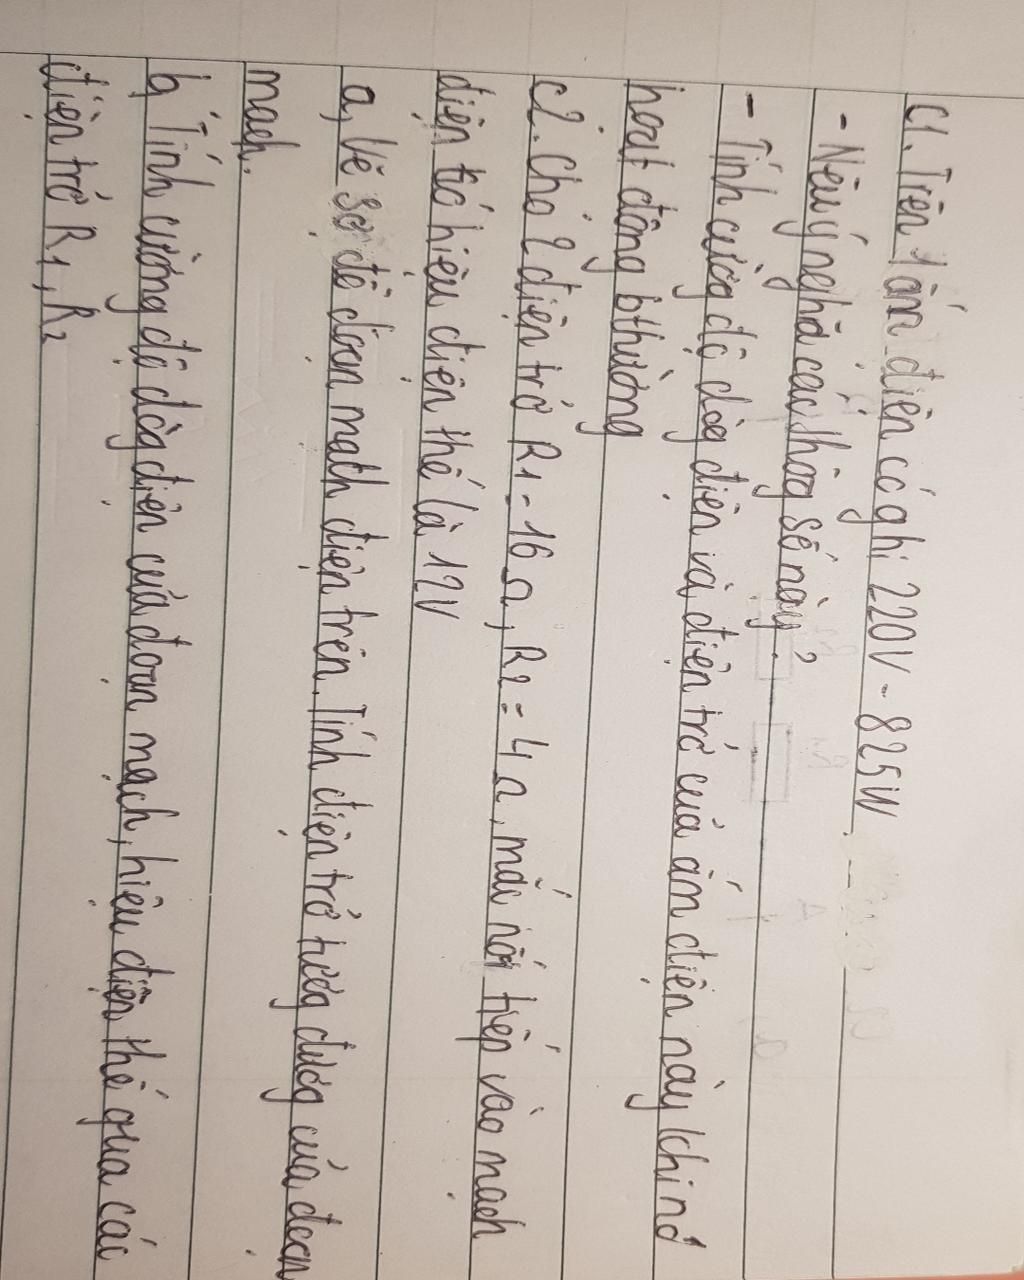 C1. Trên 1 ấm điện có ghi 220V - 825W.
- Nêu ý nghĩa các thôg số này?
- Tính cườg độ dòg điện và điện trở của ấm điện này khi nó
hoạt động bthường
C2. Cho 2 điện trở R1 = 16 Ω, R2 = 4 Ω, mắc nối tiếp vào mạch
điện có hiệu điện thế là 12V
a, Vẽ sơ đồ đoạn mạch điện trên. Tính điện trở tươg đươg của đoạn
mạch.
b, Tính cường độ dòg điện của đoạn mạch, hiệu điện thế qua các
điện trở R1, R2